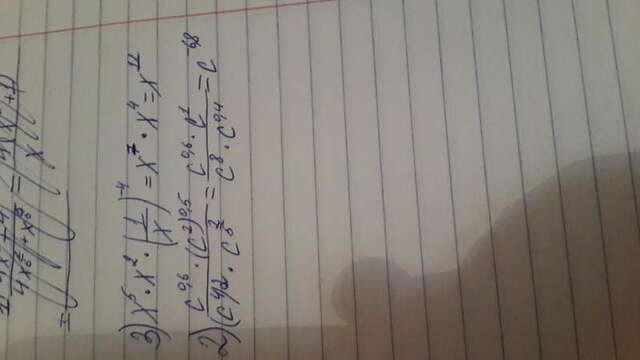 3) x⁵ · x² · (1/x)⁻⁴ = x⁷ · x⁴ = x¹¹
2) c^0,6 · (c²)^0,5 / (c⁴)² · c^(2/5) = c^0,6 · c¹ / c⁸ · c^0,4 = c^-6,8